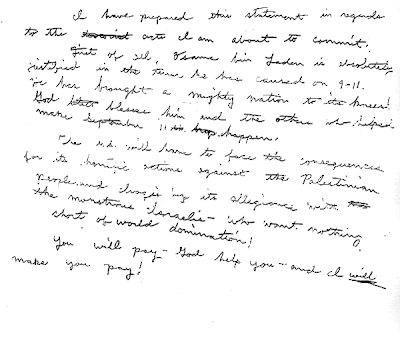 I have prepared this statement in regards
to the terrorist acts I am about to commit.
First of all, Osama bin Laden is absolutely
justified in the terror he has caused on 9-11.
He has brought a mighty nation to its knees!
God blesses him and the others who helped
make September 11 happen.
The U.S. will have to face the consequences
for its horrific actions against the Palestinian
people and its allegiance with the
the monstrous Israelis - who want nothing
short of world domination!
You will pay - God help you - and I will
make you pay!